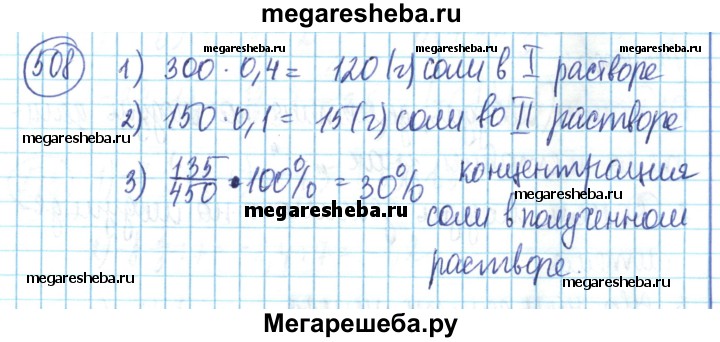 megaresheba.ru
508 1) 300 · 0,4 = 120 (г) соли в I растворе
megaresheba.ru megaresheba.ru
2) 150 · 0,1 = 15 (г) соли во II растворе
megaresheba.ru megaresheba.ru
3) 135/450 · 100% = 30% концентрация
megaresheba.ru
соли в полученном
растворе.
megaresheba.ru megaresheba.ru
Мегарешеба.ру